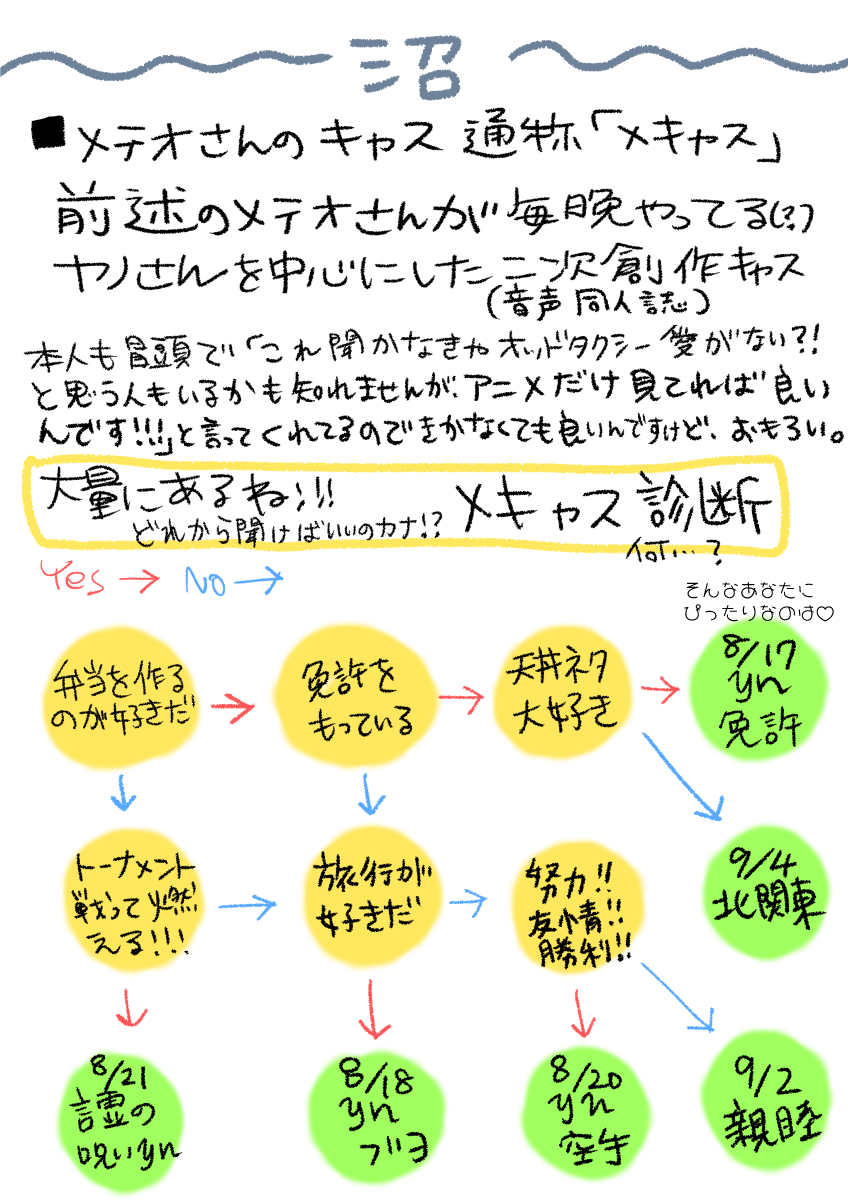 沼
■メテオさんのキャス 通称「メキャス」
前述のメテオさんが毎晩やってる(?)
ヤノさんを中心にした二次創作キャス
(音声同人誌)
本人も冒頭で「これ聞かなきゃオッドタクシー愛がない?!
と思う人もいるかも知れませんが、アニメだけ見てれば良い
んです!!!」と言ってくれてるのできかなくても良いんですけど、おもろい。
大量にあるね!!!
どれから聞けばいいのカナ!?
メキャス診断
何…?
Yes→ NO→
そんなあなたに
ぴったりなのは♡
弁当を作る
のが好きだ
免許を
もっている
天丼ネタ
大好き
8/17
yn
免許
トーナメント
戦って燃
える!!!
旅行が
好きだ
努力!!
友情!!
勝利!!
9/4
北関東
8/21
嘘の
呪いyn
8/18
yn
ブヨ
8/20
yn
空き
9/2
親睦